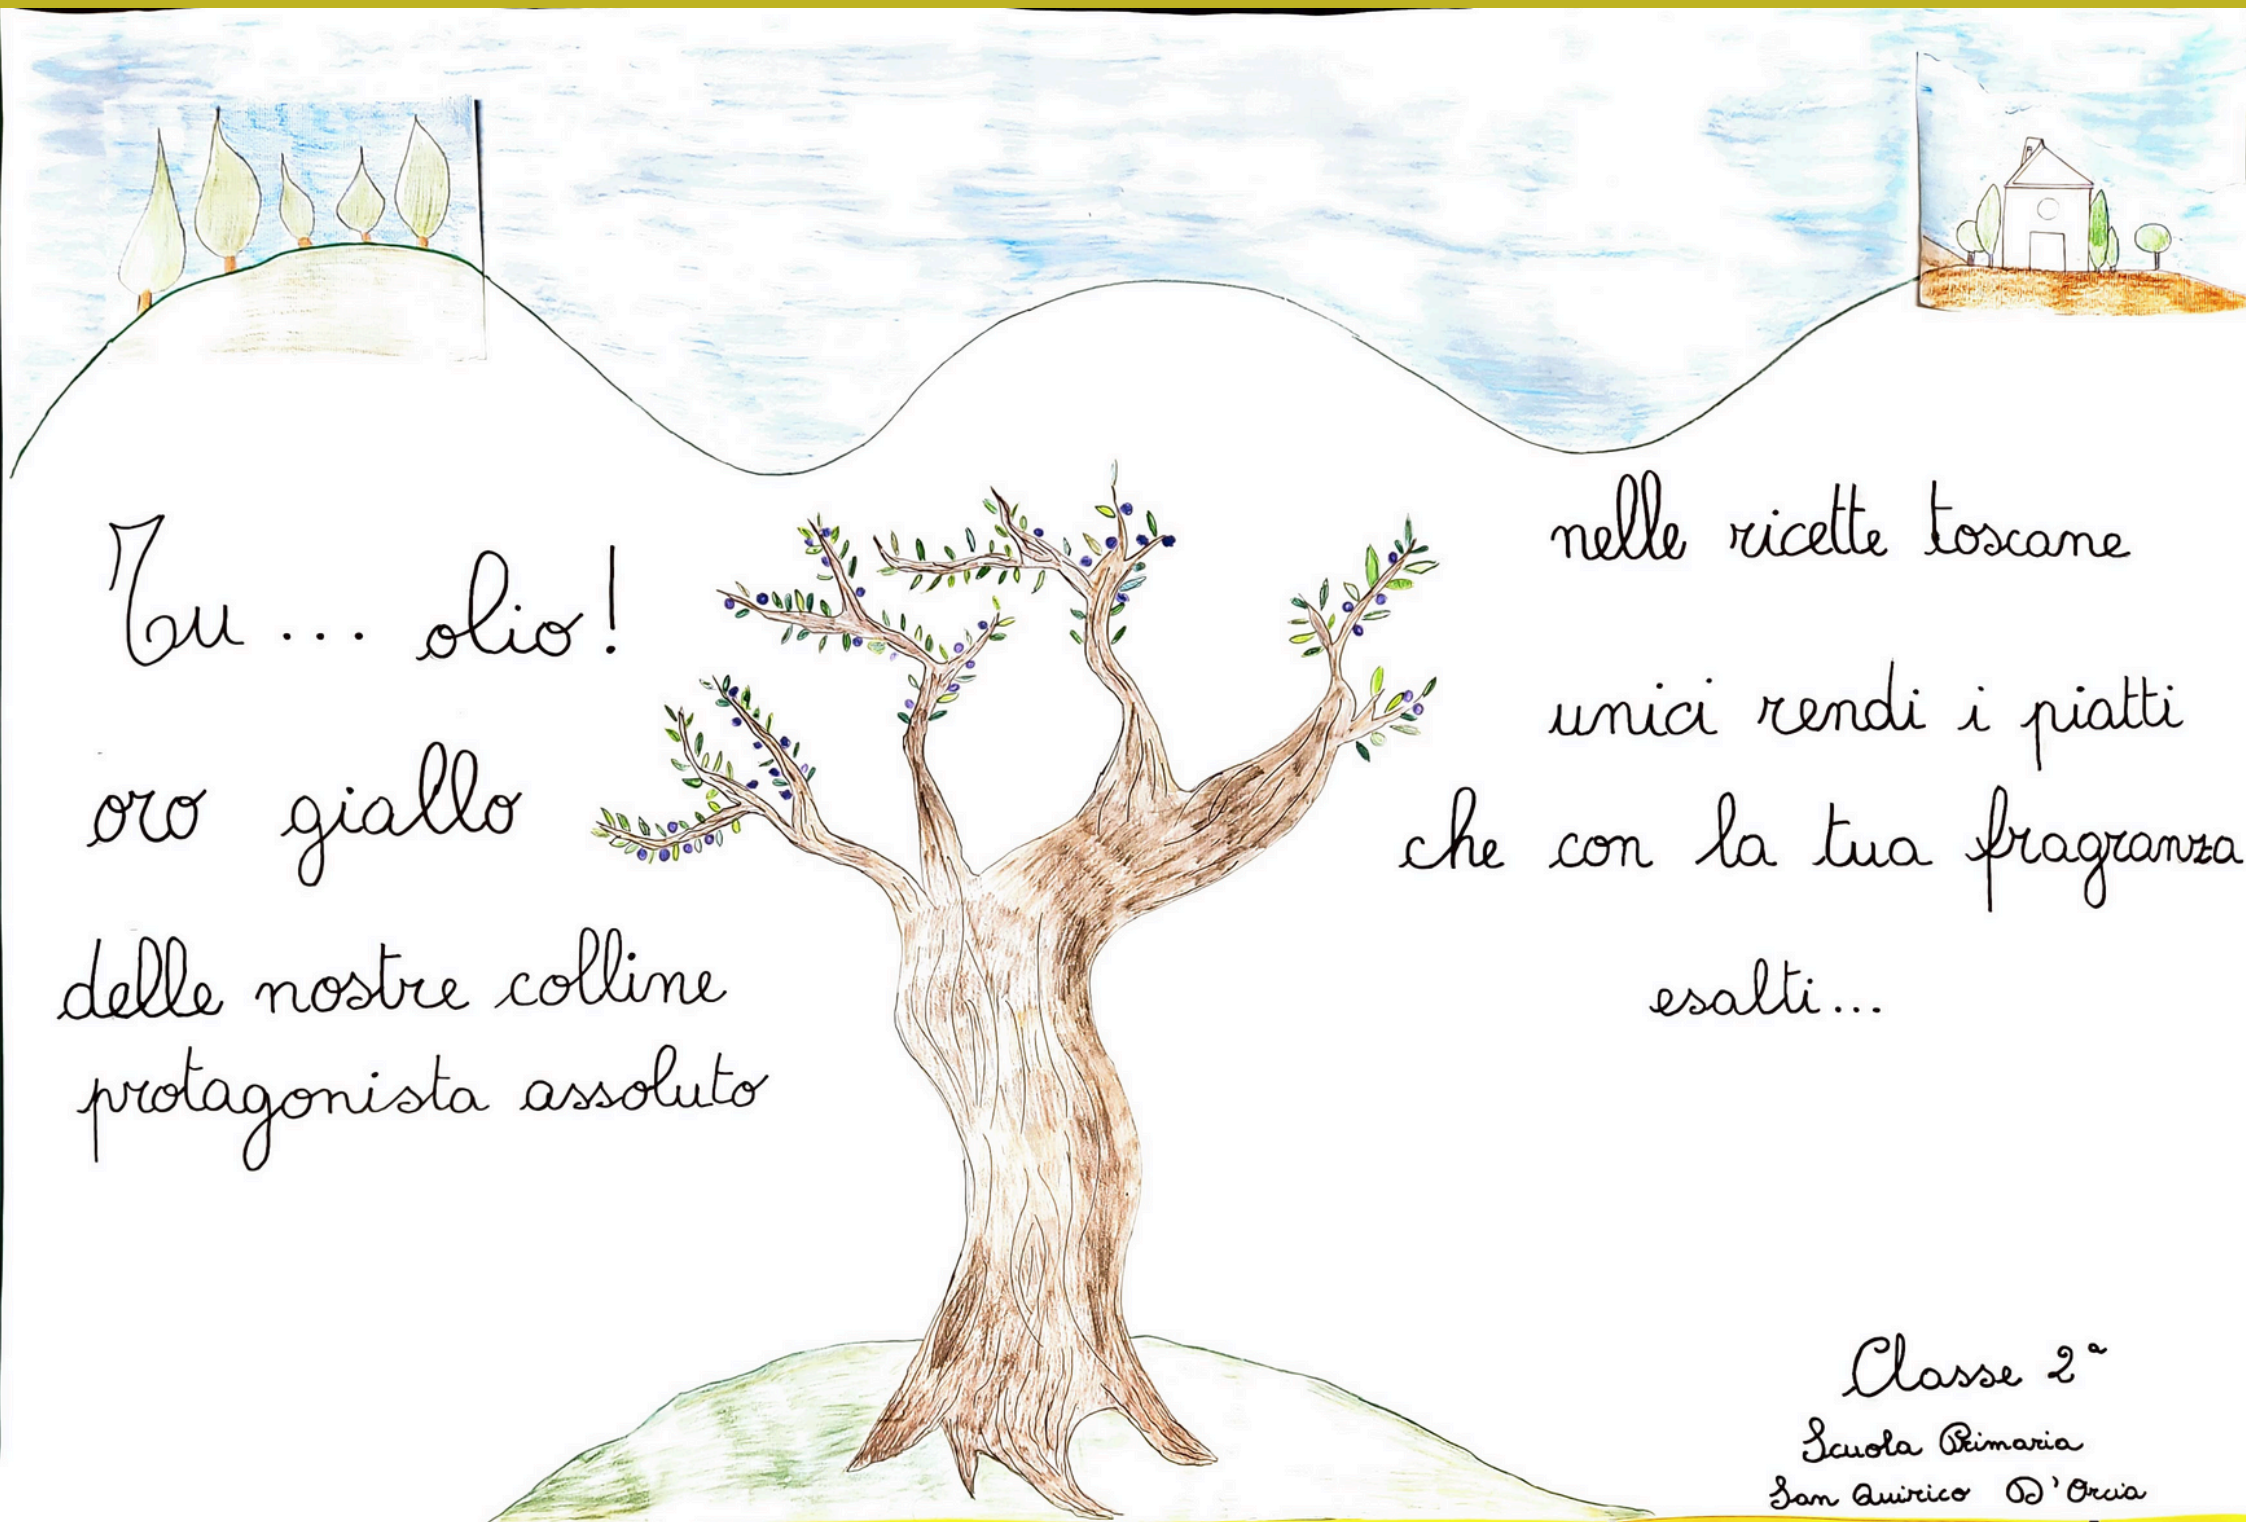 Tu ... olio!
oro giallo
delle nostre colline
protagonista assoluto
nelle ricette toscane
unici rendi i piatti
che con la tua fragranza
esalti...
Classe 2ª
Scuola Primaria
San Quirico D'Orcia